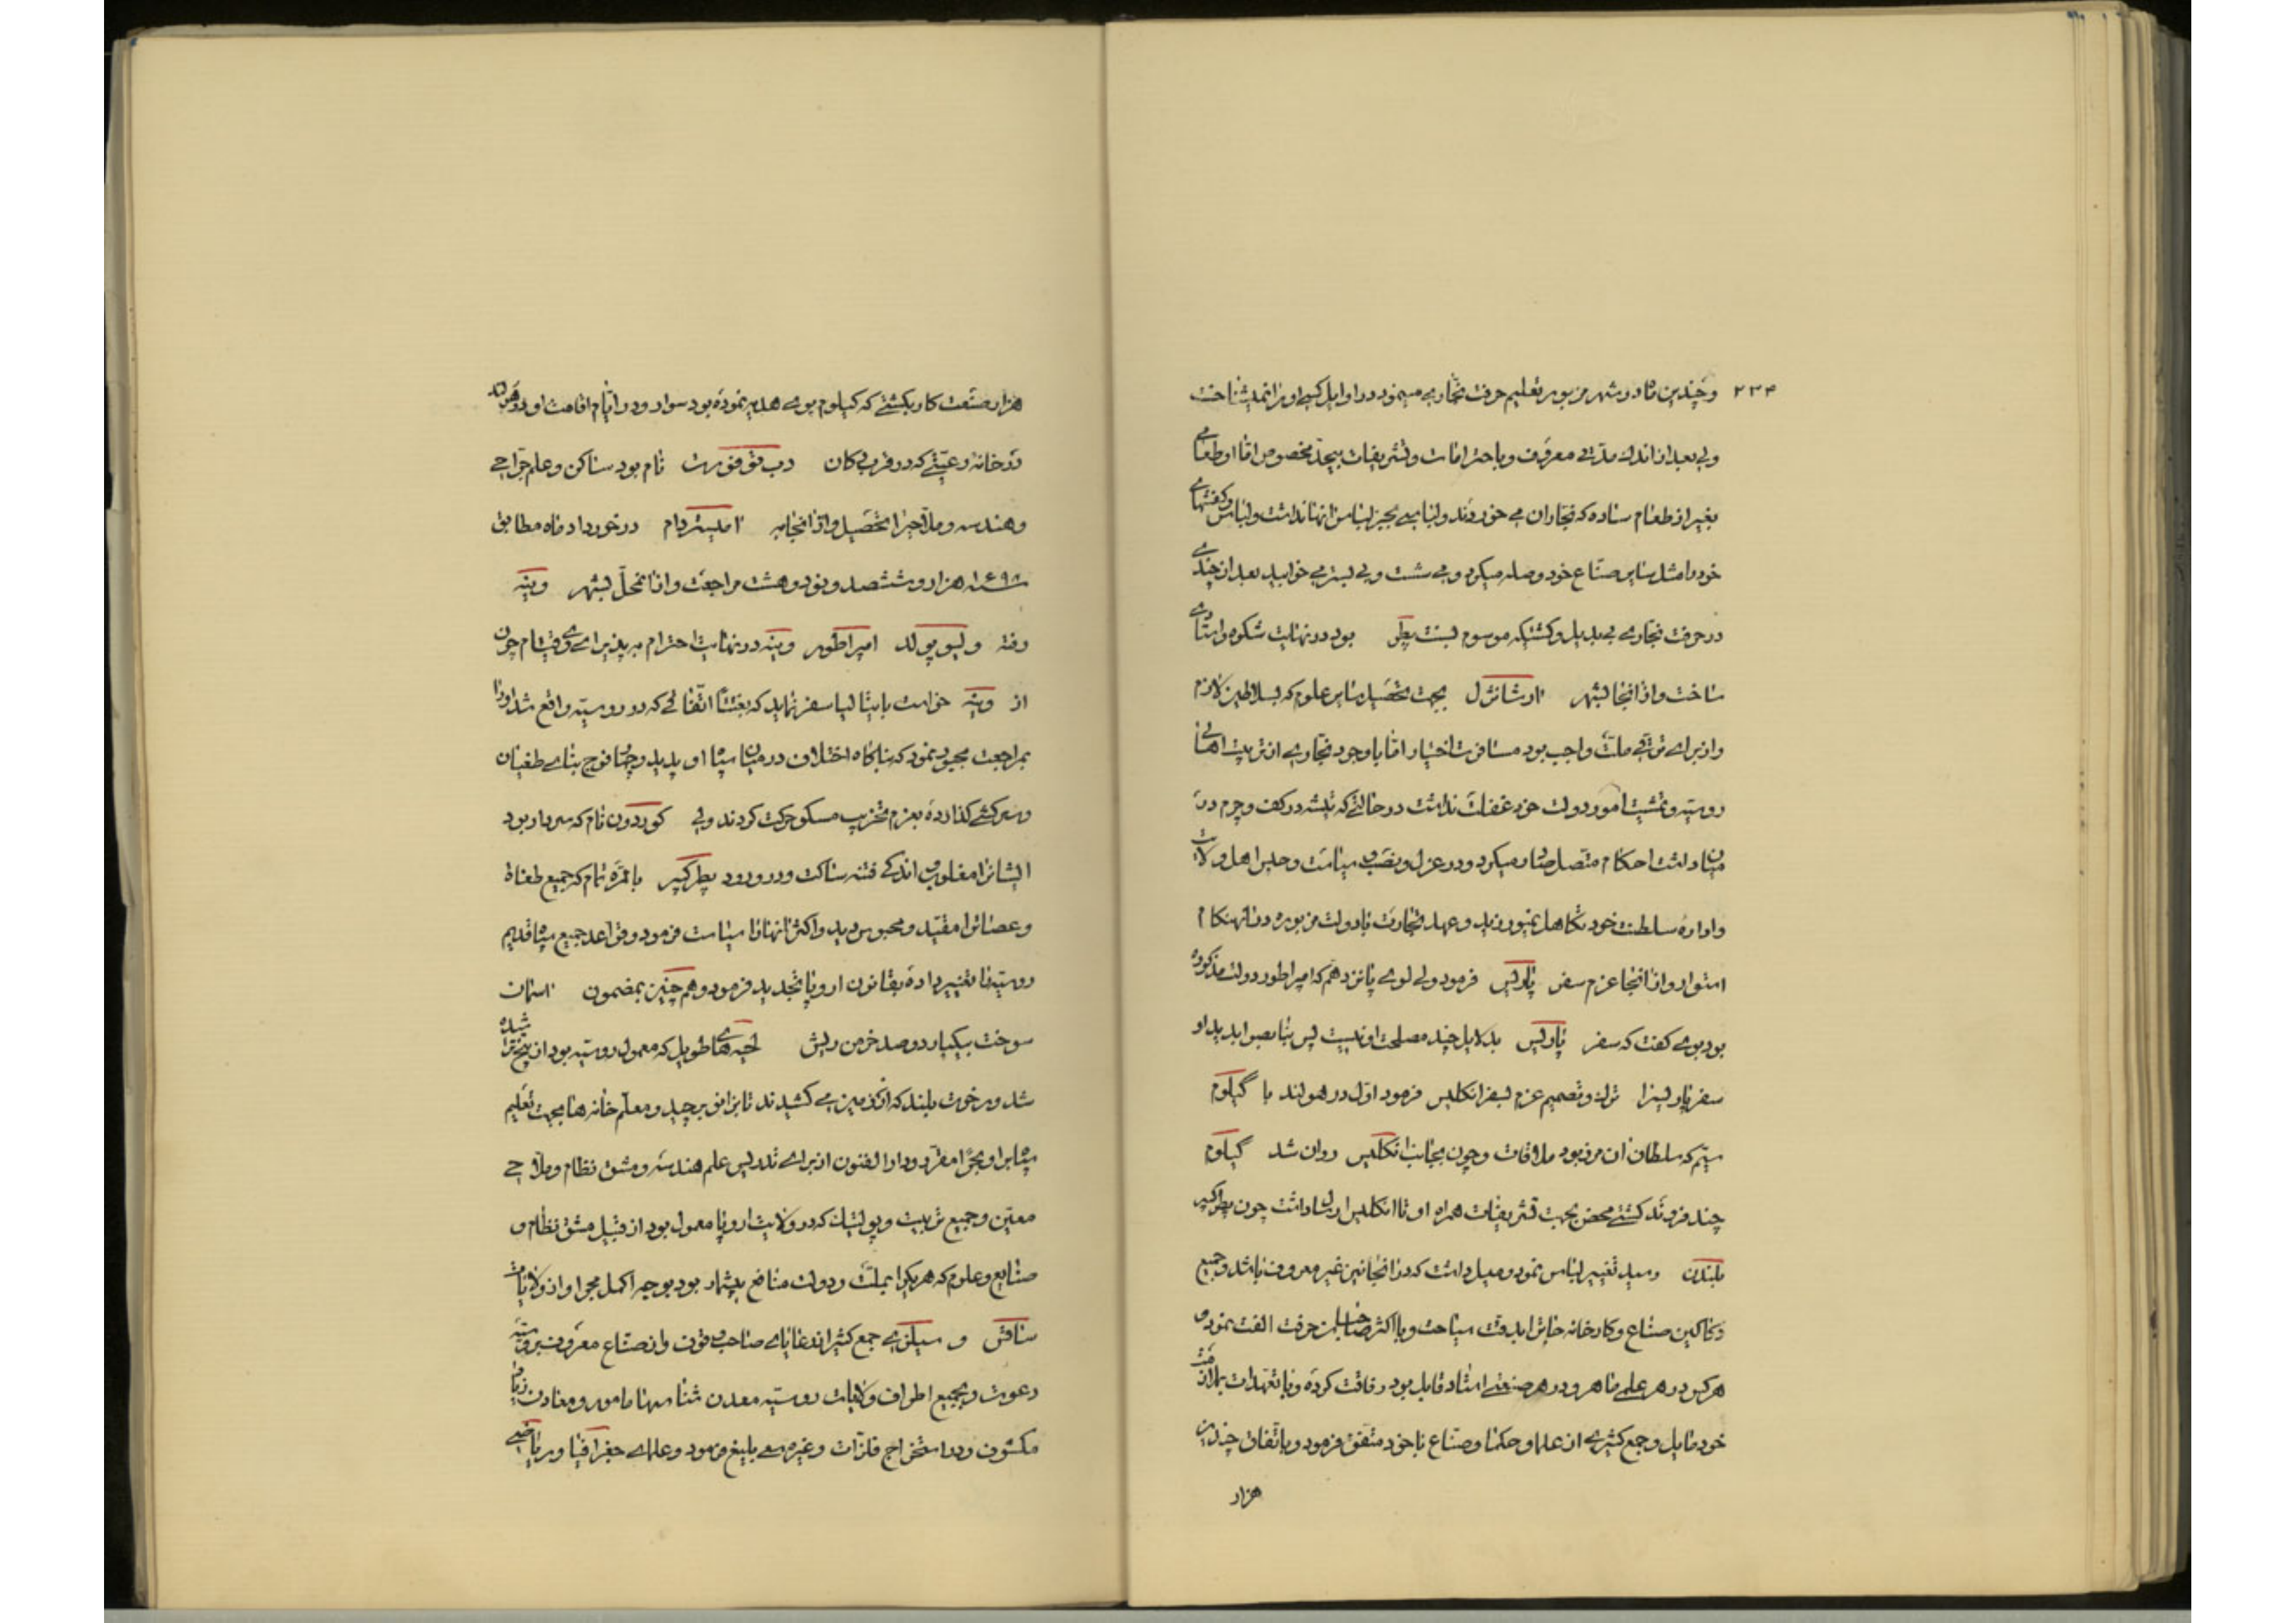 ۲۳۴
و چندین ماه در شهر مزبور تعلیم حرفت نجّاری مینمود در اوایل کسی او را نمیشناخت
ولی بعد از اندک مدتی معروف و باحترامات و تشریفات بیحد مخصوص امّا او طعامی
بغیر از طعام ساده که نجّاران می خوردند و لباسی بجز لباس آنها نداشت و لباس و کفشهای
خود را مثل سایر صنّاع خود وصله میکرد و می شست و بی بستر می خوابید بعد از چندی
در حرفت نجّاری بی بدیل و کشتیکه موسوم بسنت پطر بود در نهایت شکوه و استادی
ساخت و از آنجا بشهر ارشانژل بجهت تحصیل سایر علوم که بسلاطین لازم
و از برای ترقی ملت واجب بود مسافرت اختیار امّا با وجود نجّاری از تربیت اهالی
روسیّه و تمشیت امور دولت خود غفلت نداشت در حالتی که تیشه در کف و چرم در
میان داشت احکام متصل صادر میکرد و در عزل و نصب و سیاست و حبس اهل ولایت
و ادارهٔ سلطنت خود تکاهل نمیورزید و عهد تجارت با دولت مزبوره در آنهنگام
استوار و از آنجا عزم سفر پاریس فرمود ولی لوی پانزدهم که امپراطور دولت مذکوره
بود بوی گفت که سفر پاریس بدلایل چند مصلحت او نیست پس بنا بصوابدید او
سفر پاریس را ترک و تصمیم عزم بسفر انگلیس فرمود اوّل در هولند با گیلوم
سیّم که سلطان آن مرز بود ملاقات و چون بجانب انگلیس روان شد گیلوم
چند فروند کشتی محض بجهت تشریفات همراه او تا انگلیس ارسال داشت چون پطر کبیر
بلندن رسید تغییر لباس نمود و میل داشت که در آنجا نیز غیر معروف باشد و جمیع
دکاکین صنّاع و کارخانه جاترا بدقت سیاحت و با اکثر صاحبان حرفت الفت نمود و
هرکس در هر علمی ماهر و در هر صنعتی استاد قابل بود رفاقت کرده و با تعهدات بملازمت
خود مایل و جمع کثیری از علما و حکما و صنّاع با خود متّفق فرمود و با تفاق چندین
هزار
هزار صنعت کار بکشتی که گیلوم بوی هدیه نموده بود سوار و در ایّام اقامت او در هولند
در خانهٔ رعیّتی که در قرب دکان نام بود ساکن و علم جرّاحی
و هندسه و ملّاحی را تحصیل و از آنجا به امیستردام در خورداد ماه مطابق
سنه ۱۶۹۸ هزار و ششصد و نود و هشت مراجعت و از آنمحل بشهر وینه
رفته و لیوپولد امپراطور وینه در نهایت احترام به پذیرائی وی قیام چون
از وینه خواست بایتالیا سفر نماید که بغتتاً اتّفاقی که در روسیّه واقع شد او را
بمراجعت مجبور نمود که بناگاه اختلاف در میان سپاه او پدید و چهار فوج بنای طغیان
و سرکشی گذارده بعزم تخریب مسکو حرکت کردند ولی کوردون نام که سردار بود
ایشانرا مغلوب و اندکی فتنه ساکت و در ورود پطر کبیر بالمرّه تمام که جمیع طغاة
و عصاترا مقیّد و محبوس دید و اکثر آنها را سیاست فرمود و قواعد جمیع سپاه قدیم
روسیّه را تغییر داده بقانون اروپا تجدید فرمود و هم چنین بمضمون آسمان
سوخت بیکبار دو صد خرمن ریش لحیه های طویل که معمول روسیّه بود از بیخ تراشیده
شد و رخوت بلند که از زمین می کشیدند تا بزانو برچید و معلّم خانه ها بجهت تعلیم
سایر او مجرا مقرّر و دارالفنون از برای تدریس علم هندسه و مشق نظام و ملّاحی
معیّن و جمیع تربیت و پولتیک که در ولایت اروپا معمول بود از قبیل مشق نظام و
صنایع و علوم که هریک را بملت و دولت منافع بیشمار بود بوجه اکمل مجرا و از ولایات
ساقس و سیلزی جمع کثیر از دانایان صاحب فنون و از صنّاع معروف بروسیّه
دعوت و بجمیع اطراف ولایات روسیّه معدن شناسها مامور و معادن زیاد
مکشوف و در استخراج فلزّات و غیره سعی بلیغ فرمود و علمای جغرافیا و ریاضی